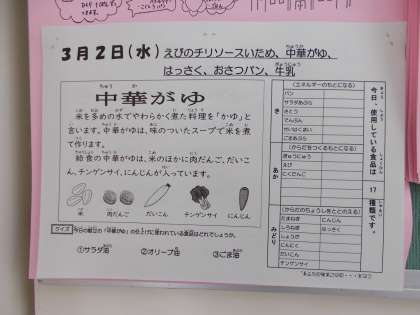 3月2日(水) えびのチリソースいため、中華がゆ、
はっさく、おさつパン、牛乳
中華がゆ
米を多めの水でやわらかく煮た料理を「かゆ」と
言います。中華がゆは、味のついたスープで米を煮
て作ります。
給食の中華がゆは、米のほかに肉だんご、だいこ
ん、チンゲンサイ、にんじんが入っています。
米 肉だんご だいこん チンゲンサイ にんじん
クイズ 今日の献立の「中華がゆ」の仕上げに使われている食品はどれでしょうか。
①サラダ油 ②オリーブ油 ③ごま油
今日、使用している食品は 17 種類です。
き
(エネルギーのもとになる)
パン
サラダあぶら
さとう
でんぷん
ごまあぶら
あか
(からだをつくるもとになる)
ぎゅうにゅう
えび
にくだんご
みどり
(からだのちょうしをととのえる)
たまねぎ にんじん
しろねぎ はっさく
しょうが
にんにく
だいこん
チンゲンサイ